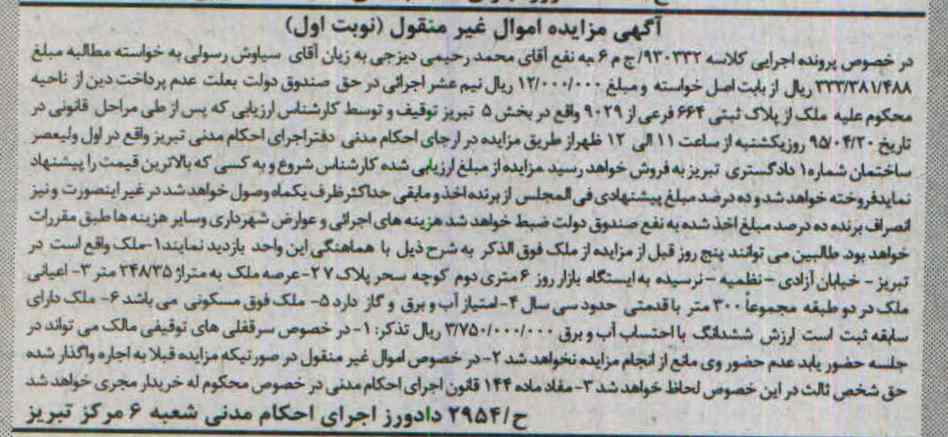 آگهی مزایده اموال غیر منقول (نوبت اول)
در خصوص پرونده اجرایی کلاسه ۹۳۰۳۳۲/ج م ۶ به نفع آقای محمد رحیمی دیزجی به زیان آقای سیاوش رسولی به خواسته مطالبه مبلغ
۳۳۳/۳۸۱/۴۸۸ ریال از بابت اصل خواسته و مبلغ ۱۲/۰۰۰/۰۰۰ ریال نیم عشر اجرائی در حق صندوق دولت بعلت عدم پرداخت دین از ناحیه
محکوم علیه ملک از پلاک ثبتی ۶۶۴ فرعی از ۹۰۲۹ واقع در بخش ۵ تبریز توقیف و توسط کارشناس ارزیابی که پس از طی مراحل قانونی در
تاریخ ۹۵/۰۴/۲۰ روز یکشنبه از ساعت ۱۱ الی ۱۲ ظهر از طریق مزایده در اجرای احکام مدنی دفتر اجرای احکام مدنی تبریز واقع در اول ولیعصر
ساختمان شماره ۱ دادگستری تبریز به فروش خواهد رسید مزایده از مبلغ ارزیابی شده کارشناس شروع و به کسی که بالاترین قیمت را پیشنهاد
نماید فروخته خواهد شد و ده درصد مبلغ پیشنهادی فی المجلس از برنده اخذ و مابقی حداکثر ظرف یکماه وصول خواهد شد در غیر اینصورت و نیز
انصراف برنده ده درصد مبلغ اخذ شده به نفع صندوق دولت ضبط خواهد شد هزینه های اجرائی و عوارض شهرداری و سایر هزینه ها طبق مقررات
خواهد بود. طالبین می توانند پنج روز قبل از مزایده از ملک فوق الذکر به شرح ذیل با هماهنگی این واحد بازدید نمایند ۱-ملک واقع است در
تبریز - خیابان آزادی - نظمیه - نرسیده به ایستگاه بازار روز ۶ متری دوم کوچه سحر پلاک ۲۷-عرصه ملک به متراژ ۲۴۸/۳۵ متر ۳- اعیانی
ملک در دو طبقه مجموعاً ۳۰۰ متر با قدمتی حدود سی سال ۴-امتیاز آب و برق و گاز دارد ۵- ملک فوق مسکونی می باشد ۶- ملک دارای
سابقه ثبت است ارزش ششدانگ با احتساب آب و برق ۳/۷۵۰/۰۰۰/۰۰۰ ریال تذکر: ۱-در خصوص سرقفلی های توقیفی مالک می تواند در
جلسه حضور یابد عدم حضور وی مانع از انجام مزایده نخواهد شد ۲-در خصوص اموال غیر منقول در صورتیکه مزایده قبلا به اجاره واگذار شده
حق شخص ثالث در این خصوص لحاظ خواهد شد ۳- مفاد ماده ۱۴۴ قانون اجرای احکام مدنی در خصوص محکوم له خریدار مجری خواهد شد
ح/۲۹۵۴ دادورز اجرای احکام مدنی شعبه ۶ مرکز تبریز